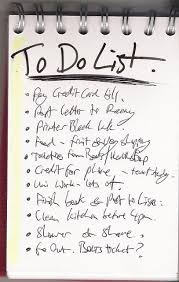 To Do List.
• Pay Credit Card bill.
• Post letter to
• Printer Black Ink.
• Food – fruit shopping
• from Boots/
• Credit for phone –
• Uni Work – lots of.
• Finish book & Post to Lisa.
• Clean kitchen before 6pm.
• Shower & Shave.
• Go Out. ticket?